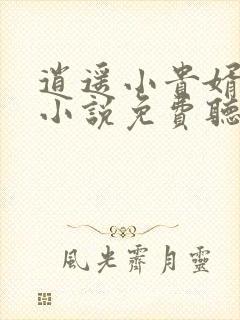 逍遥小貴婿
小說免費聽
風光霽月靈